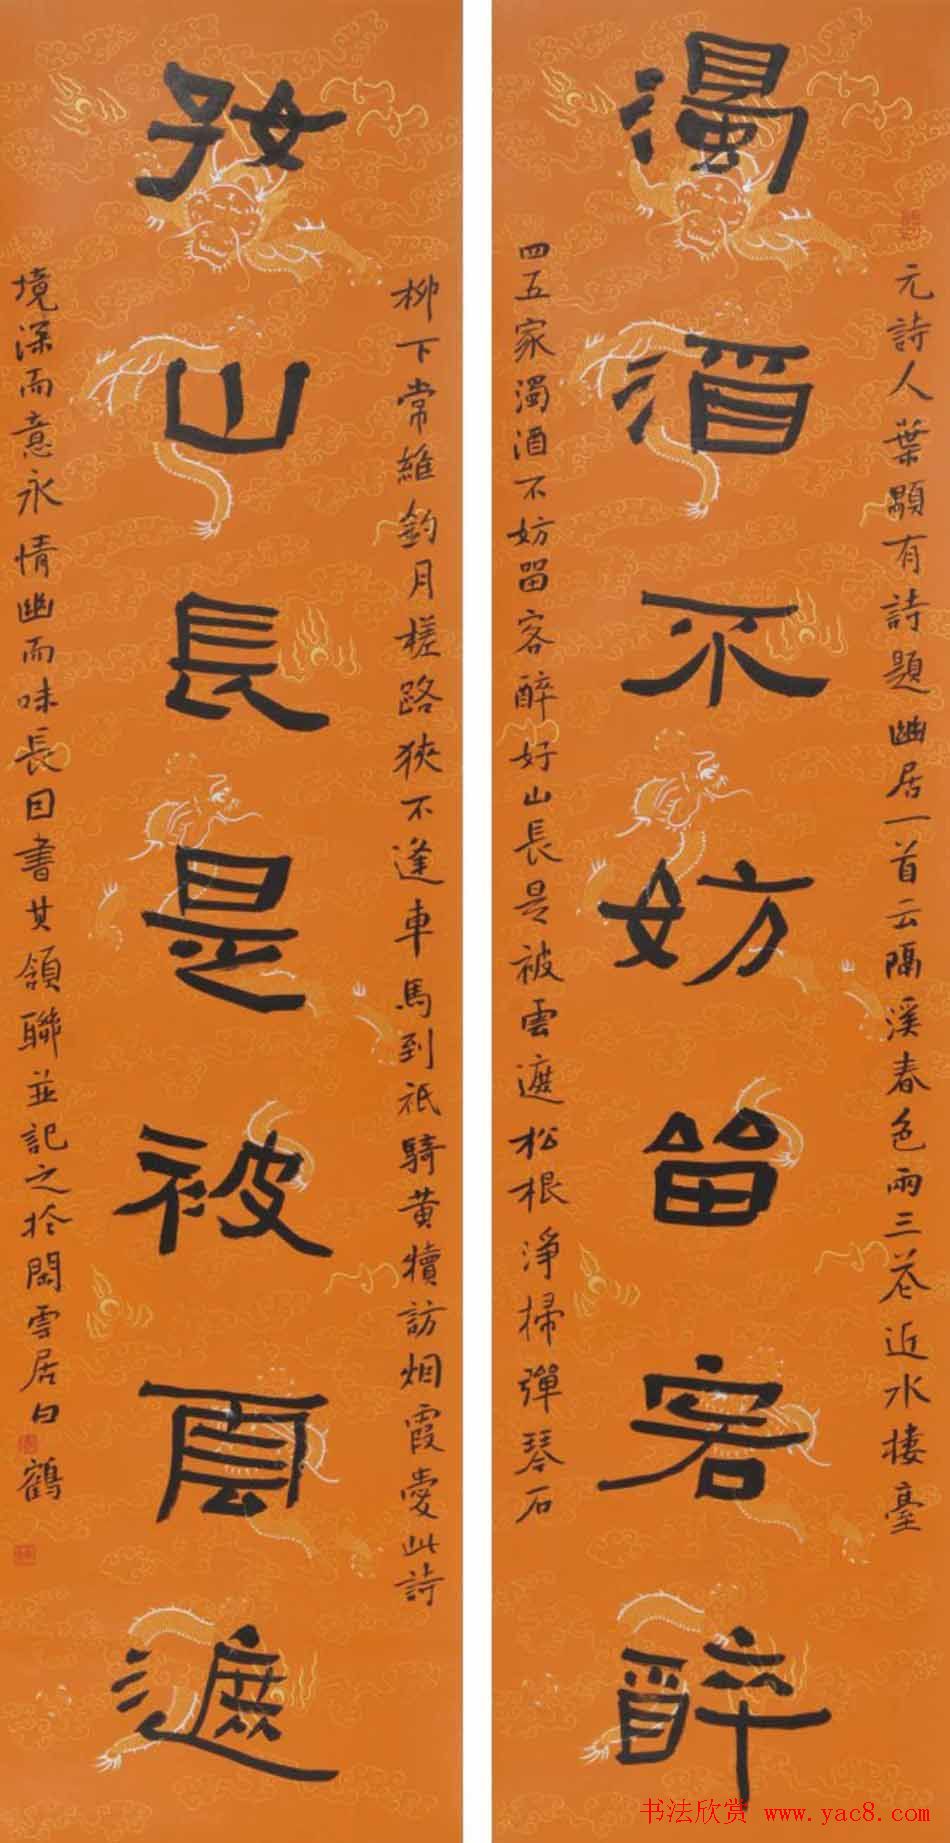 濁酒不妨畱客醉
元詩人葉顒有詩題幽居一首云隔溪春色兩三花近水樓臺
四五家濁酒不妨畱客醉好山長是被雲遮松根淨掃彈琴石
好山長是被雲遮
柳下常維釣月槎路狹不逢車馬到祇騎黃犢訪烟霞愛此詩
境深而意永情幽而味長因書其頷聯並記之於閑雲居白鶴
书法欣赏 www.yac8.com